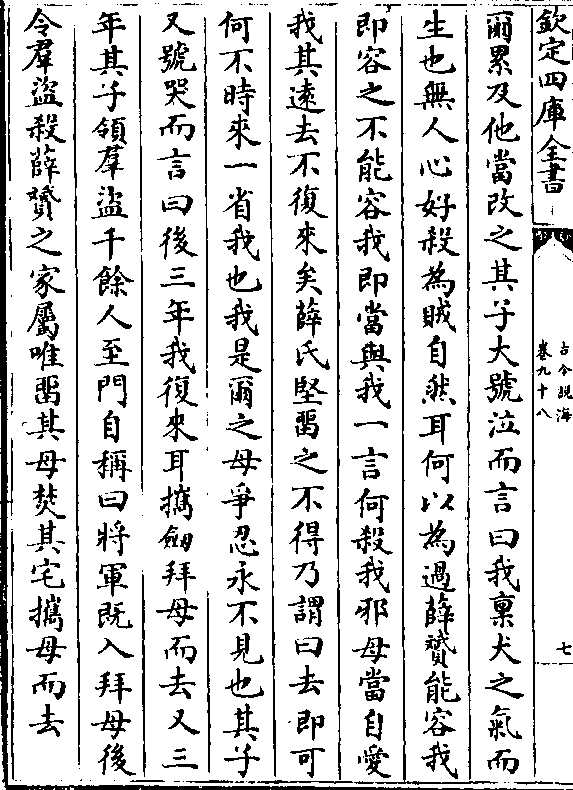 欽定四庫全書
古今說海
卷九十八
七
爾累及他當改之其子大號泣而言曰我稟犬之氣而
生也無人心好殺為賊自然耳何以為過薛贇能容我
即容之不能容我即當與我一言何殺我邪母當自愛
我其遠去不復來矣薛氏堅留之不得乃謂曰去即可
何不時來一省我也我是爾之母爭忍永不見也其子
又號哭而言曰後三年我復來耳攜劒拜母而去又三
年其子領羣盜千餘人至門自稱曰將軍既入拜母後
令羣盜殺薛贇之家屬唯留其母焚其宅攜母而去